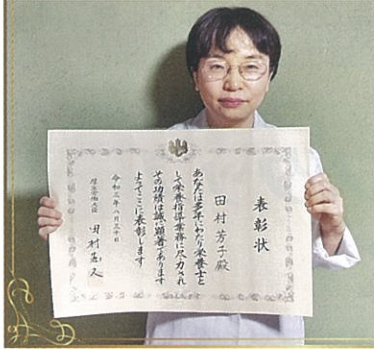 表彰状
田村芳子殿
あなたは多年にわたり栄養士と
して栄養指導業務に尽力され
その功績は誠に顕著であります
よってここに表彰します
令和三年八月三十日
厚生労働大臣 田村憲久